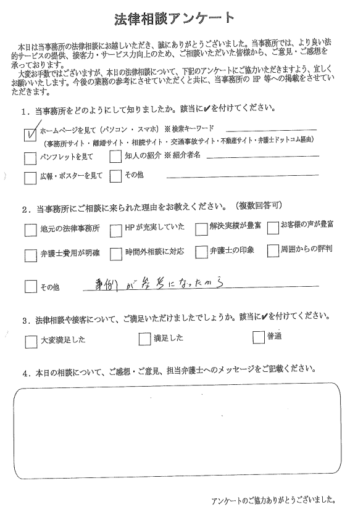 法律相談アンケート
本日は当事務所の法律相談にお越しいただき、誠にありがとうございました。当事務所では、より良い法
的サービスの提供、接客力・サービス力向上のため、ご相談いただいた皆様から、ご意見・ご感想を
承っております。
大変お手数ではございますが、本日の法律相談について、下記のアンケートにご協力いただきますよう、宜しく
お願いいたします。今後の業務の参考にさせていただくと共に、当事務所の HP 等への掲載をさせてい
ただきます。
1．当事務所をどのようにして知りましたか。該当に✔を付けてください。
✓ ホームページを見て（パソコン・スマホ）※ 検索キーワード
（事務所サイト・離婚サイト・相続サイト・交通事故サイト・不動産サイト・弁護士ドットコム経由）
□ パンフレットを見て □ 知人の紹介 ※ 紹介者名
□ 広報・ポスターを見て □ その他
2．当事務所にご相談に来られた理由をお教えください。（複数回答可）
□ 地元の法律事務所 □ HPが充実していた □ 解決実績が豊富 □ お客様の声が豊富
□ 弁護士費用が明確 □ 時間外相談に対応 □ 弁護士の印象 □ 周囲からの評判
□ その他 事例が参考になったから
3．法律相談や接客について、ご満足いただけましたでしょうか。該当に✔を付けてください。
□ 大変満足した □ 満足した □ 普通
4．本日の相談について、ご感想・ご意見、担当弁護士へのメッセージをご記載ください。
アンケートのご協力ありがとうございました。